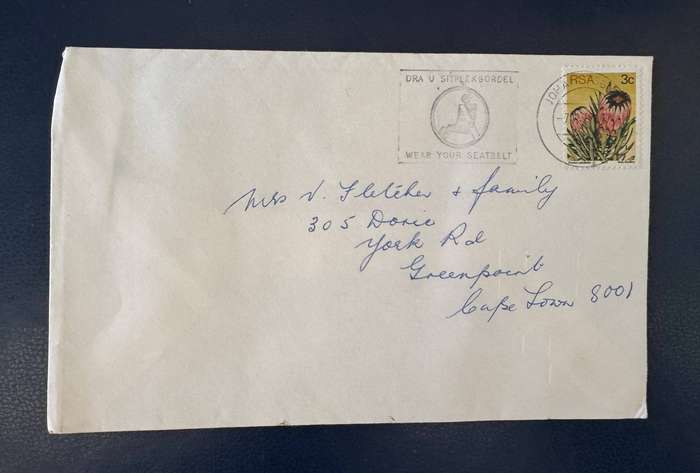 DRA U SITPLEKGORDEL
WEAR YOUR SEATBELT
JOHA
RSA 3c
Mrs V. Fletcher + family
305 Doric
York Rd
Greenpoint
Cape Town 8001